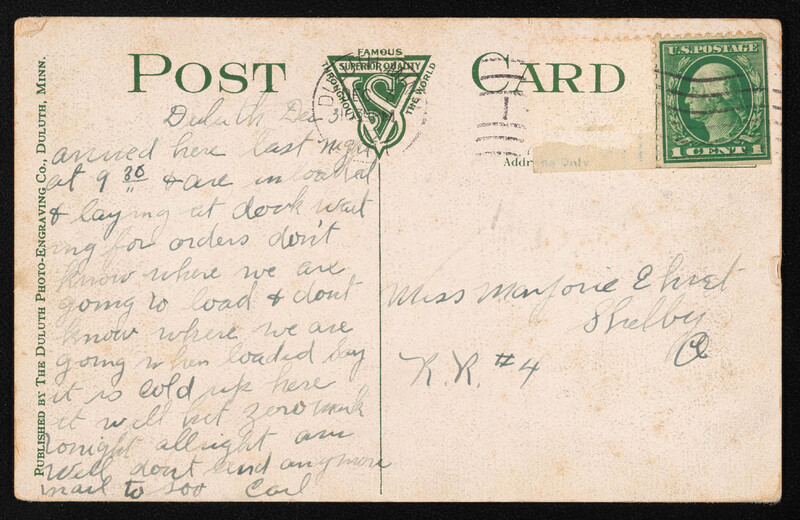 POST CARD
FAMOUS
SUPERIOR QUALITY
THROUGHOUT THE WORLD
U.S. POSTAGE
1 CENT 1
Address Only
PUBLISHED BY THE DULUTH PHOTO-ENGRAVING CO., DULUTH, MINN.
Duluth Dec
arrived here last night
at 9 30 & are unloaded
& laying at dock wait
ing for orders don't
know where we are
going to load & dont
know where we are
going when loaded say
it is cold up here
it will hit zero mark
tonight allright am
well dont send anymore
mail to Soo Carl
Miss Marjorie Ehret
Shelby
O
R.R. #4